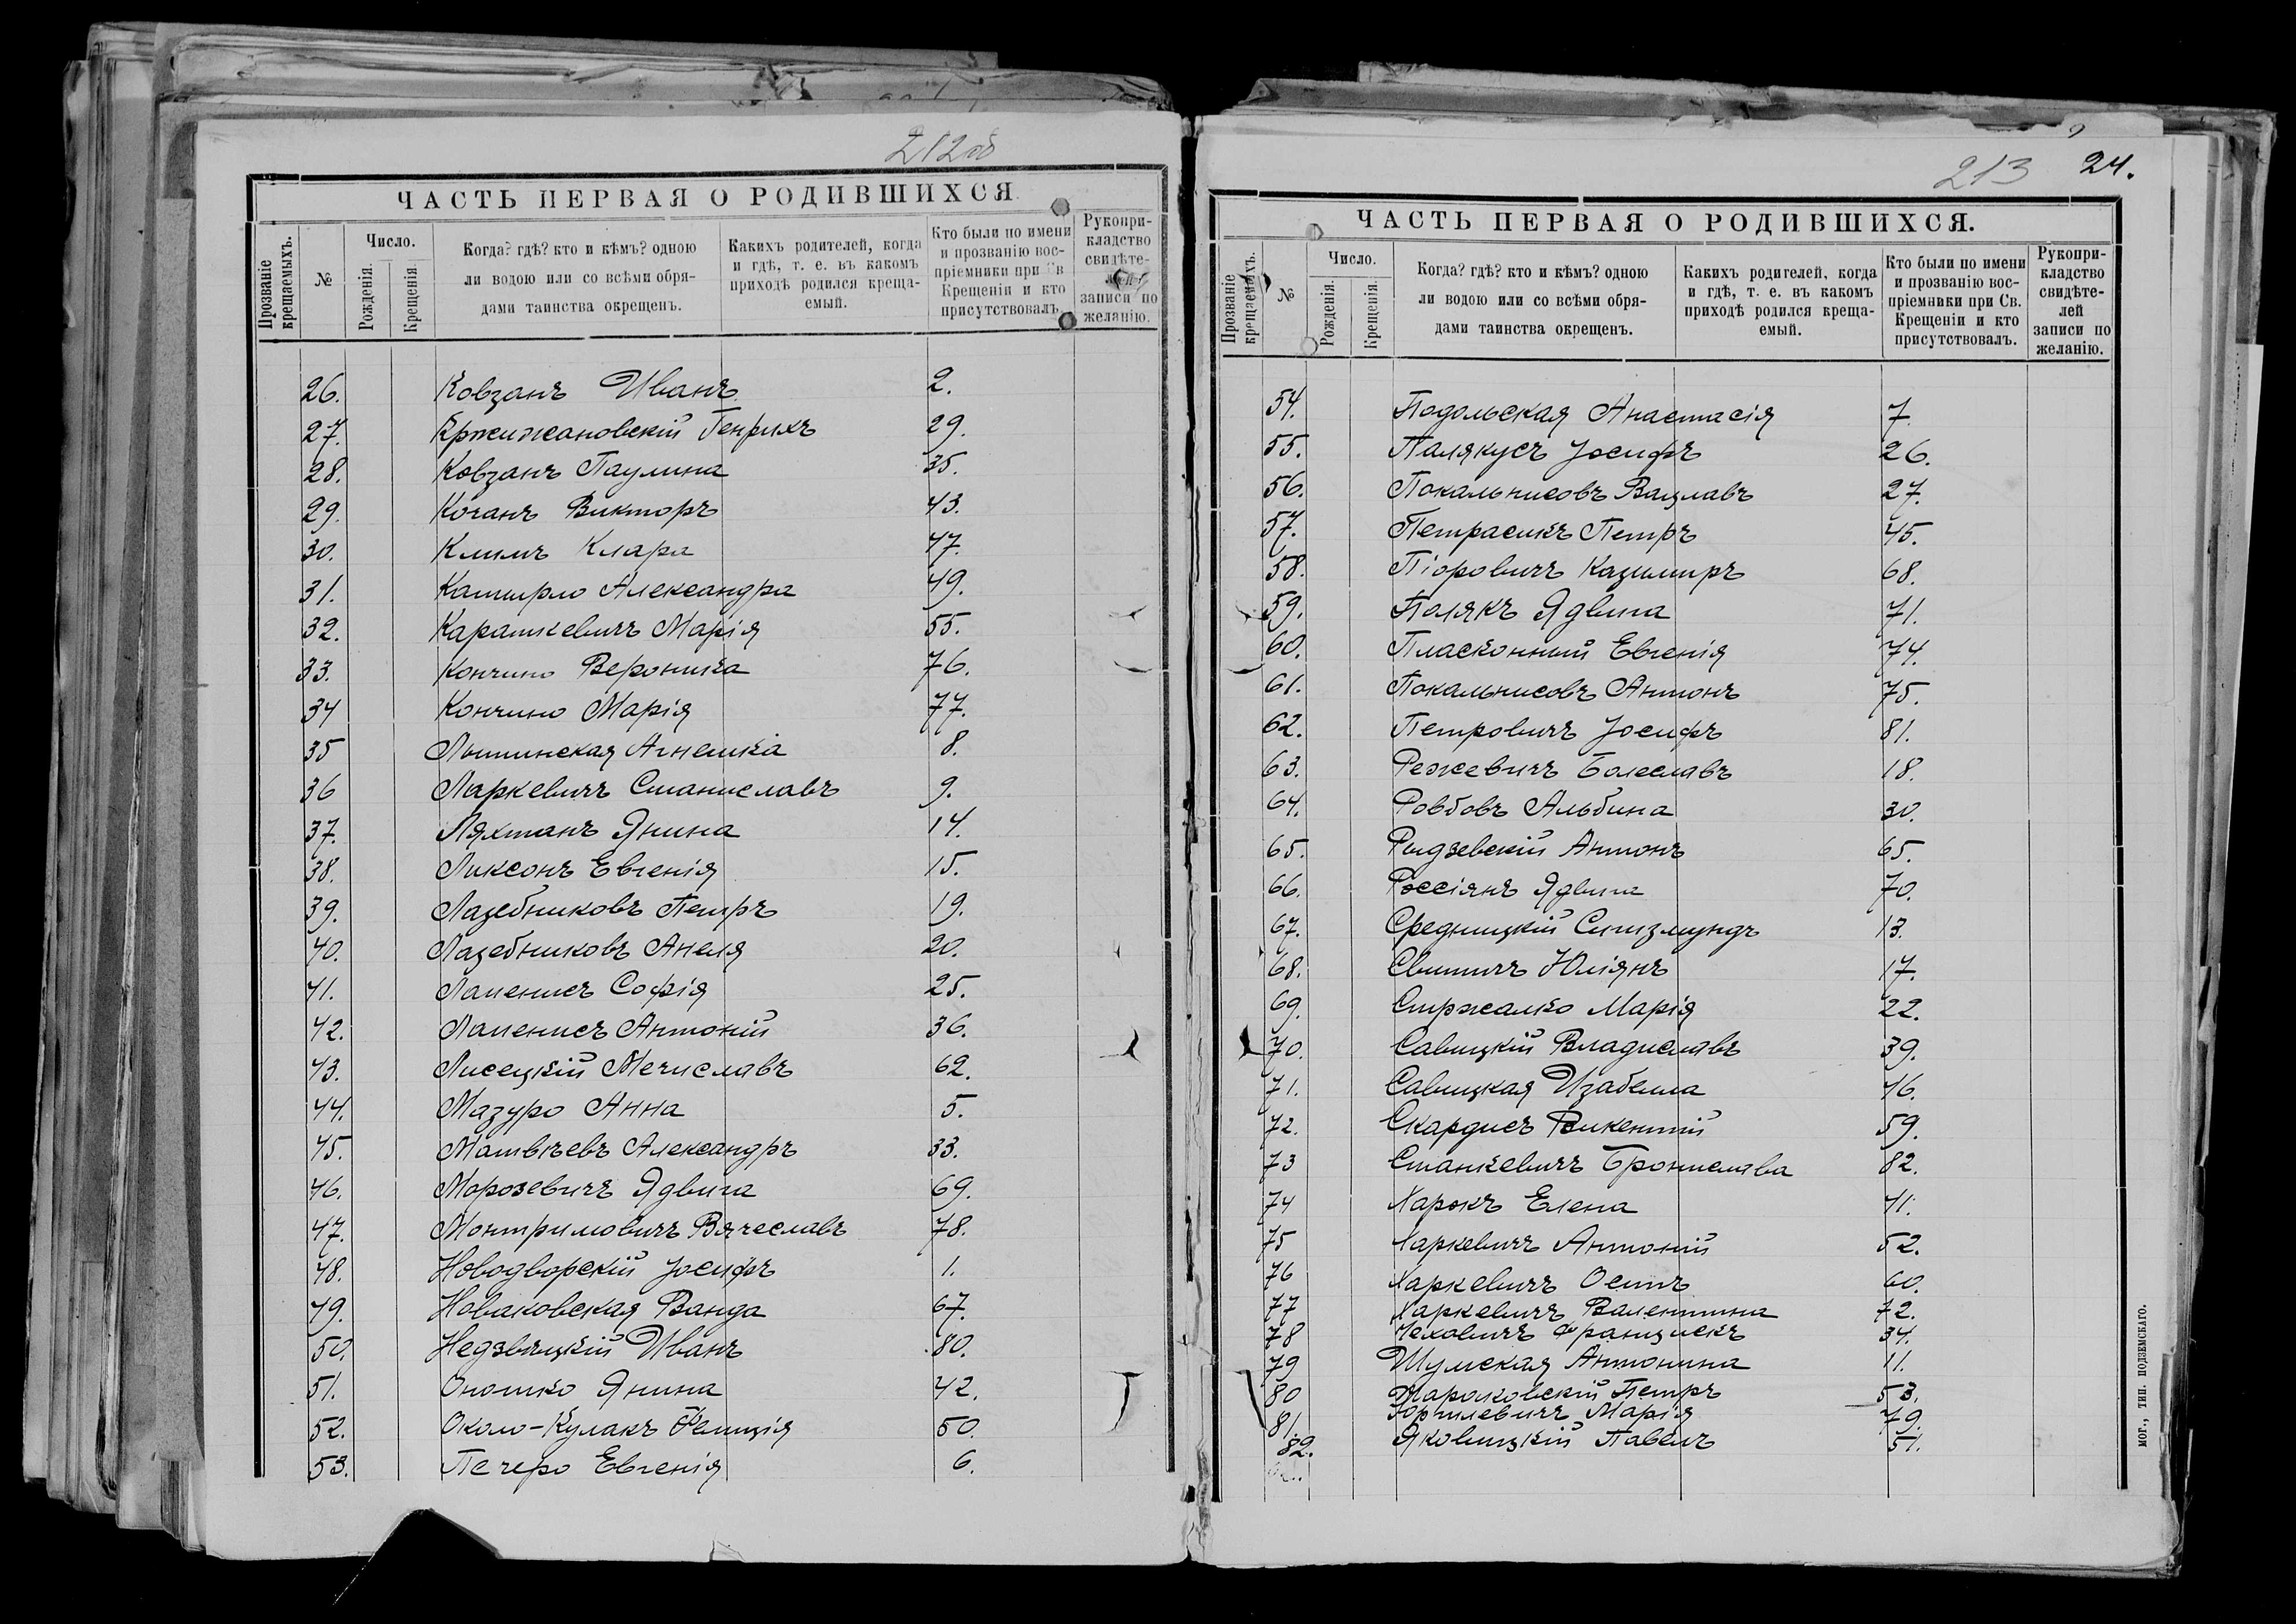 212об
ЧАСТЬ ПЕРВАЯ О РОДИВШИХСЯ
Прозваніе крещаемыхъ.
№
Число.
Рожденія.
Крещенія.
Когда? гдѣ? кто и кѣмъ? одною
ли водою или со всѣми обря-
дами таинства окрещенъ.
Какихъ родителей, когда
и гдѣ, т. е. въ какомъ
приходѣ родился креща-
емый.
Кто были по имени
и прозванію вос-
пріемники при Св
Крещеніи и кто
присутствовалъ
Рукопри-
кладство
свидѣте-
записи по
желанію.
26. Ковзанъ Иванъ 2.
27. Кржижановскій Генрихъ 29.
28. Ковзанъ Паулина 35.
29. Коганъ Викторъ 43.
30. Климъ Клара 47.
31. Кашпрло Александра 49.
32. Карашкевичъ Марія 55.
33. Кончило Вероника 76.
34 Кончило Марія 77.
35 Агнешка 8.
36 Ларкевичъ Станиславъ 9.
37. Ляхманъ Янина 14.
38. Ликсонъ Евгенія 15.
39. Лазебниковъ Петръ 19.
40. Лазебниковъ Анеля 20.
41. Лапенисъ Софія 25.
42. Лапенисъ Антоній 36.
43. Лисецкій Мечиславъ 62.
44. Мазуро Анна 5.
45. Матвѣевъ Александръ 33.
46. Морозевичъ Ядвига 69.
47. Монтримовичъ Вячеславъ 78.
48. Новодворскій Іосифъ 1.
49. Новаковская Ванда 67.
50. Недзвѣцкій Иванъ 80.
51. Оношко Янина 42.
52. Около-Кулакъ Фелиція 50.
53. Печеро Евгенія 6.
213 24.
ЧАСТЬ ПЕРВАЯ О РОДИВШИХСЯ.
Прозваніе крещаемыхъ.
№
Число.
Рожденія.
Крещенія.
Когда? гдѣ? кто и кѣмъ? одною
ли водою или со всѣми обря-
дами таинства окрещенъ.
Какихъ родителей, когда
и гдѣ, т. е. въ какомъ
приходѣ родился креща-
емый.
Кто были по имени
и прозванію вос-
пріемники при Св.
Крещеніи и кто
присутствовалъ.
Рукопри-
кладство
свидѣте-
лей
записи по
желанію.
54. Подольская Анастасія 7.
55. Палякусъ Іосифъ 26.
56. Покальнисовъ Вацлавъ 27.
57. Петрасикъ Петръ 45.
58. Піоровичъ Казимиръ 68.
59. Полякъ Ядвига 71.
60. Пласконный Евгенія 74.
61. Покальнисовъ Антонъ 75.
62. Петровичъ Іосифъ 81.
63. Режевичъ Болеславъ 18.
64. Ровбовъ Альбина 30.
65. Рыдзевскій Антонъ 65.
66. Россіянъ Ядвига 70.
67. Средницкій Сигизмундъ 13.
68. Свитичъ Юліянъ 17.
69. Стржалко Марія 22.
70. Савицкій Владиславъ 39.
71. Савицкая Изабелла 46.
72. Скардисъ Викентій 59.
73 Станкевичъ Бронислава 82.
74 Харокъ Елена 41.
75 Харкевичъ Антоній 52.
76 Харкевичъ Осипъ 60.
77 Харкевичъ Валентина 72.
78 Чеховичъ Францискъ 34.
79 Шумская Антонина 11.
80 Петръ 53.
81. Марія 79.
82. Яковицкій Павелъ 51.
МОГ., ТИП. ПОДЗЕМСКАГО.